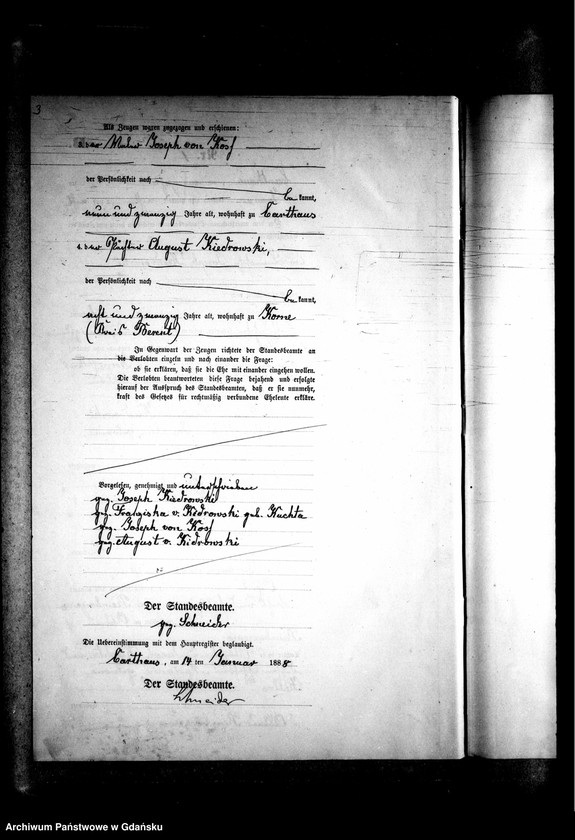 3
Als Zeugen waren zugezogen und erschienen:
3. der Maler Joseph von Kosſ
der Persönlichkeit nach
bekannt,
neun und zwanzig Jahre alt, wohnhaft zu Carthaus
4. der Pächter August Kiedrowski,
der Persönlichkeit nach
bekannt,
acht und zwanzig Jahre alt, wohnhaft zu Korne
(Kreis Berent)
In Gegenwart der Zeugen richtete der Standesbeamte an
die Verlobten einzeln und nach einander die Frage:
ob sie erklären, daß sie die Ehe mit einander eingehen wollen.
Die Verlobten beantworteten diese Frage bejahend und erfolgte
hierauf der Ausspruch des Standesbeamten, daß er sie nunmehr,
kraft des Gesetzes für rechtmäßig verbundene Eheleute erkläre.
Vorgelesen, genehmigt und unterschrieben
gez. Joseph Kiedrowski
gez. Franziska v. Kiedrowski geb. Kuchta
gez. Joseph von Kosſ
gez. August v. Kiedrowski
Der Standesbeamte.
gez. Schneider
Die Uebereinstimmung mit dem Hauptregister beglaubigt.
Carthaus, am 14 ten Januar 1888
Der Standesbeamte.
Schneider
Archiwum Państwowe w Gdańsku